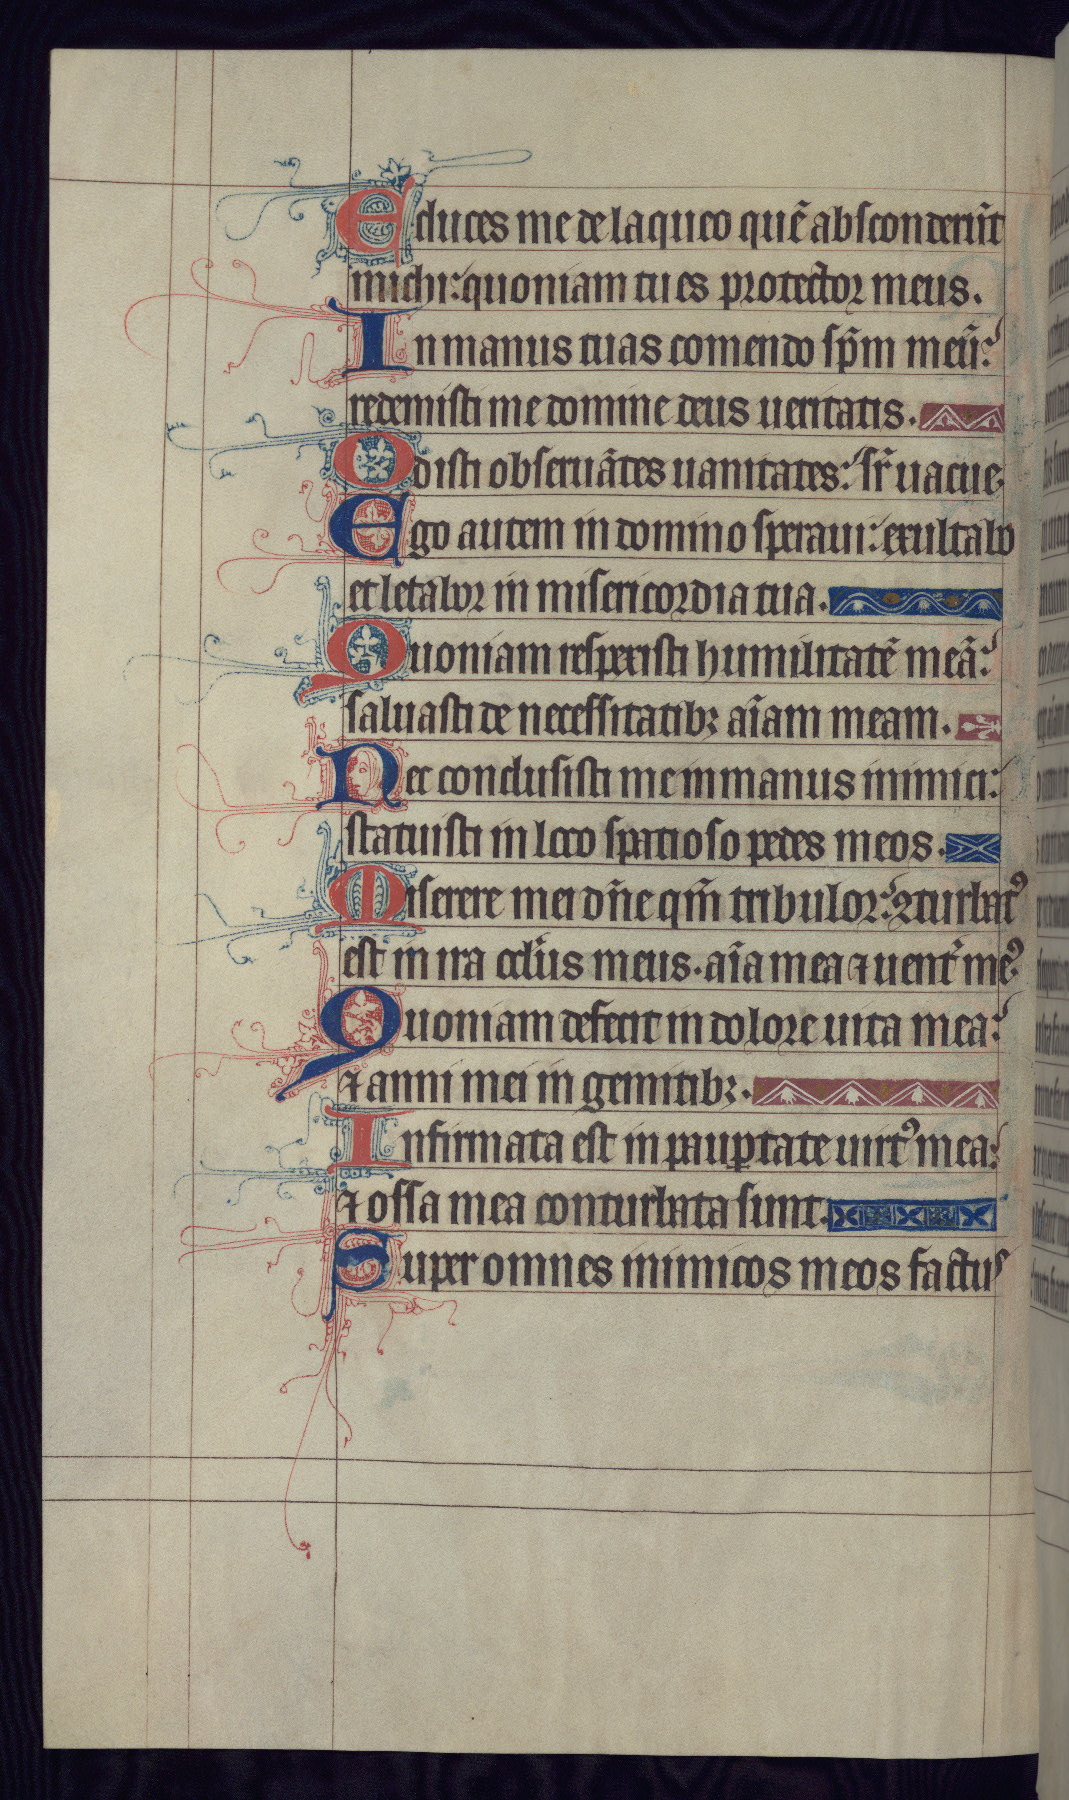 Educes me de laqueo quē absconderūt
michi: quoniam tu es protector meus.
In manus tuas comendo sp̄m meū:
redemisti me domine deus ueritatis.
Odisti obseruātes uanitates: sr̄ uacue
Ego autem in domino speraui: exultabo
et letabor in misericordia tua.
Quoniam respexisti humilitatē meā:
saluasti de necessitatibꝫ aīam meam.
Nec conclusisti me in manus inimici:
statuisti in loco spatioso pedes meos.
Miserere mei dn̄e qm̄ tribulor: ꝯturbatꝰ
est in ira oclus meus. aīa mea ⁊ uent̾ meꝰ.
Quoniam defecit in dolore uita mea:
⁊ anni mei in gemitibꝫ.
Infirmata est in pauꝑtate uirtꝰ mea:
⁊ ossa mea conturbata sunt.
Super omnes inimicos meos factuꝰ